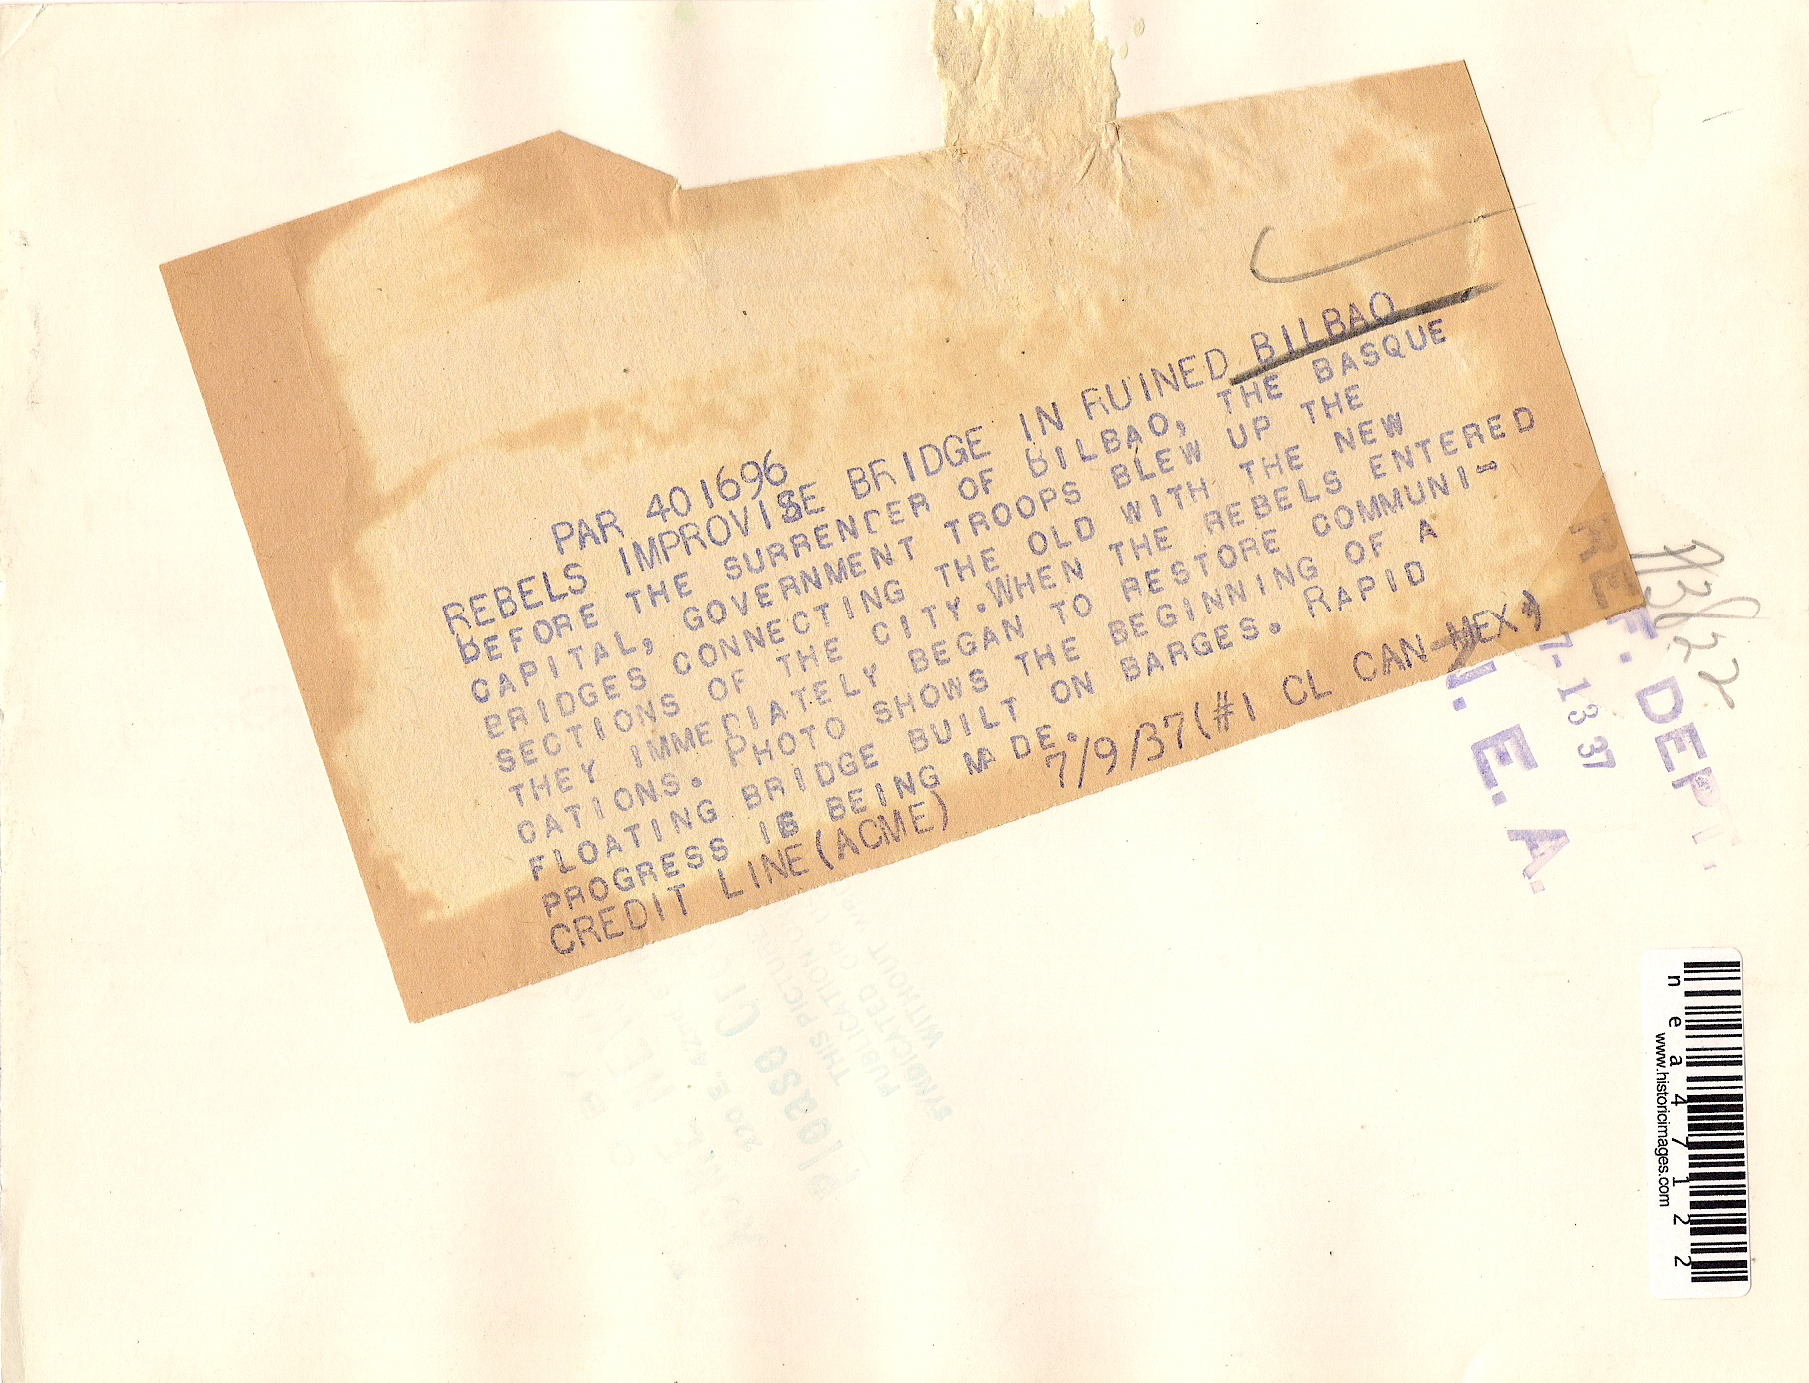 PAR 401696
REBELS IMPROVISE BRIDGE IN RUINED BILBAO
BEFORE THE SURRENDER OF BILBAO, THE BASQUE
CAPITAL, GOVERNMENT TROOPS BLEW UP THE
BRIDGES CONNECTING THE OLD WITH THE NEW
SECTIONS OF THE CITY.WHEN THE REBELS ENTERED
THEY IMMEDIATELY BEGAN TO RESTORE COMMUNI-
CATIONS. PHOTO SHOWS THE BEGINNING OF A
FLOATING BRIDGE BUILT ON BARGES. RAPID
PROGRESS IS BEING MADE.
CREDIT LINE(ACME) 7/9/37(#1 CL CAN MEX)
REF. DEPT.
7-13 37
N. E. A.
Please
THIS PICTURE
PUBLICATION
SYNDICATED
WITHOUT
220 E. 42nd
BY
nea47122
www.historicimages.com